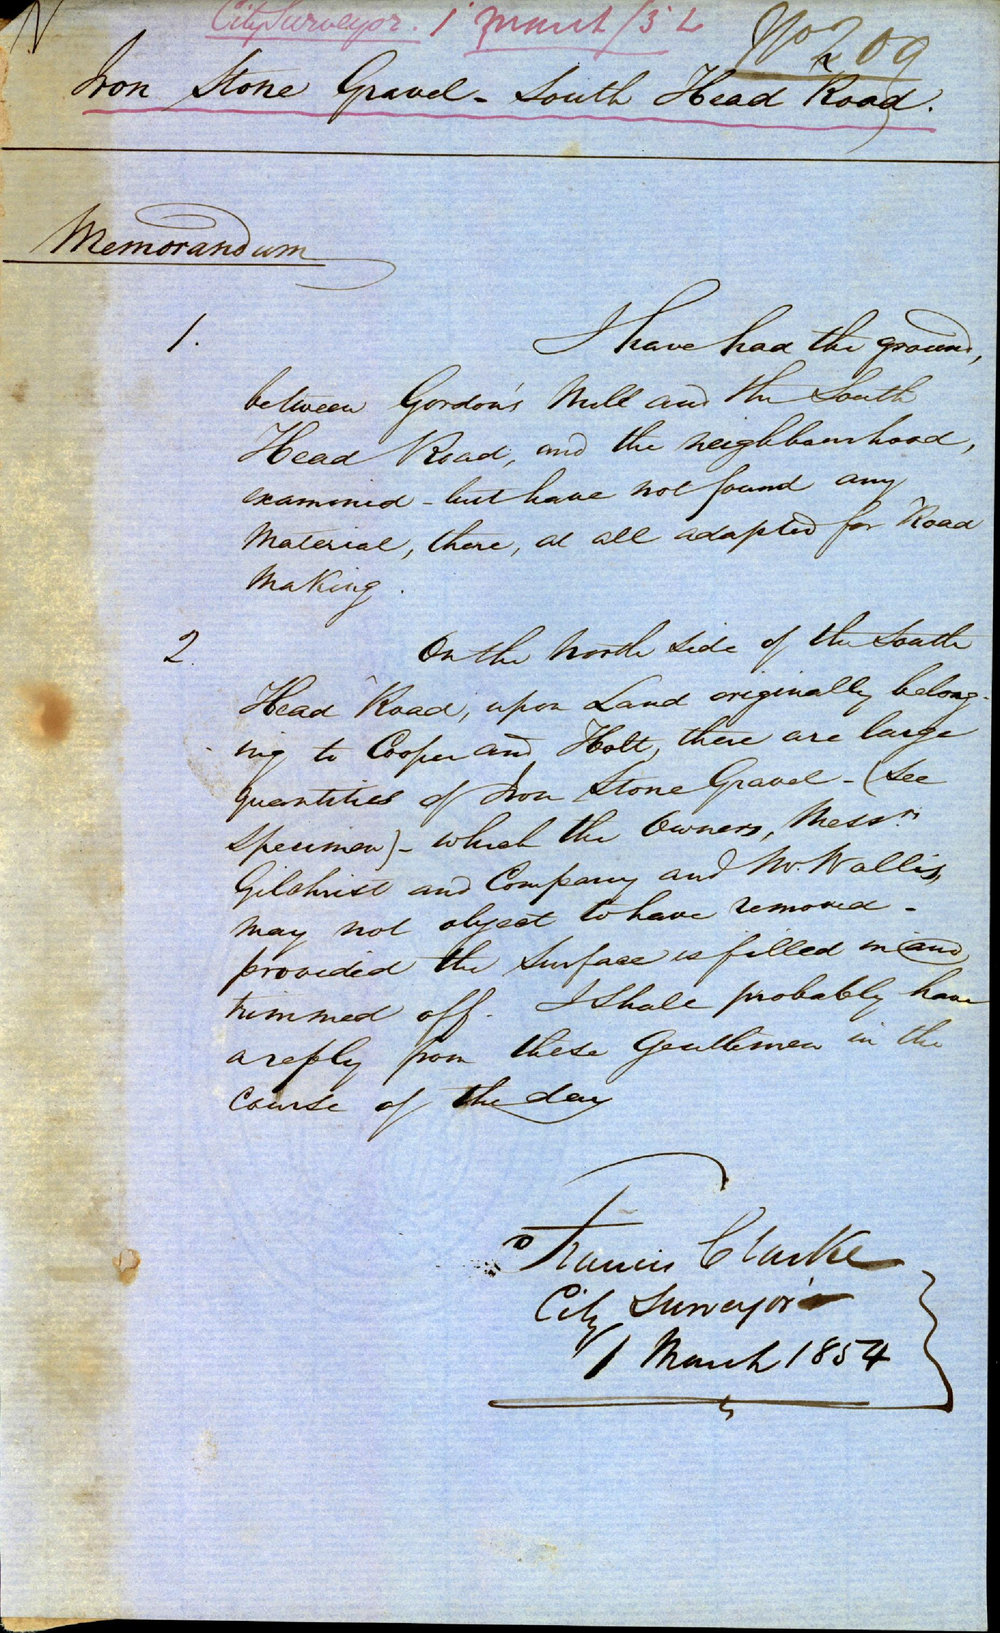 City Surveyor. 1 March /54
No 209
Iron Stone Gravel - South Head Road.
Memorandum
1. I have had the ground,
between Gordon's Mill and the South
Head Road, and the neighbourhood,
examined - but have not found any
Material, there, at all adapted for Road
Making.
2. On the North side of the South
Head Road, upon Land originally belong-
ing to Cooper and Holt, there are large
quantities of Iron Stone Gravel - (See
Specimen) - which the Owners, Messrs
Gilchrist and Company and Mr. Wallis,
may not object to have removed -
provided the Surface is filled in and
trimmed off. I shall probably have
a reply from these Gentlemen in the
course of the day
Francis Clarke
City Surveyor
1 March 1854